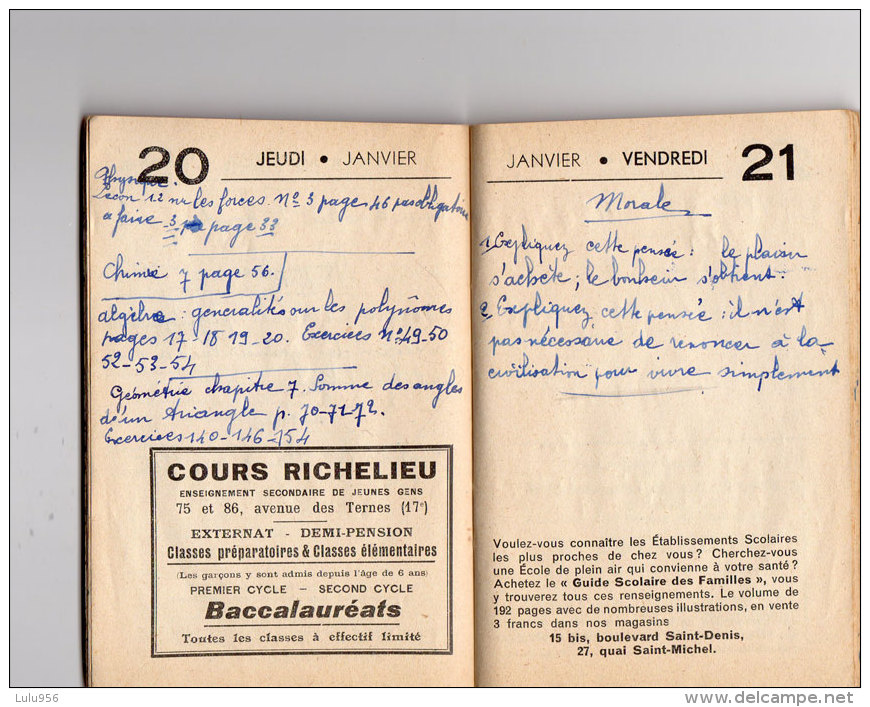 20 JEUDI • JANVIER
Physique.
Leçon 12 sur les forces n° 3 page 46 pas obligatoire
a faire 3 page 33
Chimie 7 page 56.
algèbre : generalités sur les polynômes
pages 17-18 19-20. Exercices n° 49-50
52-53-54
Géométrie chapitre 7. Somme des angles
d'un triangle p. 70-71-72.
Exercices 140-146-154
COURS RICHELIEU
ENSEIGNEMENT SECONDAIRE DE JEUNES GENS
75 et 86, avenue des Ternes (17e)
EXTERNAT - DEMI-PENSION
Classes préparatoires & Classes élémentaires
(Les garçons y sont admis depuis l'âge de 6 ans)
PREMIER CYCLE — SECOND CYCLE
Baccalauréats
Toutes les classes à effectif limité
JANVIER • VENDREDI 21
Morale
1. Expliquez cette pensée : le plaisir
s'achète ; le bonheur s'obtient.
2. Expliquez cette pensée : il n'est
pas nécessaire de renoncer à la
civilisation pour vivre simplement
Voulez-vous connaître les Établissements Scolaires
les plus proches de chez vous ? Cherchez-vous
une École de plein air qui convienne à votre santé ?
Achetez le « Guide Scolaire des Familles », vous
y trouverez tous ces renseignements. Le volume de
192 pages avec de nombreuses illustrations, en vente
3 francs dans nos magasins
15 bis, boulevard Saint-Denis,
27, quai Saint-Michel.
Lulu956
www.delcampe.net